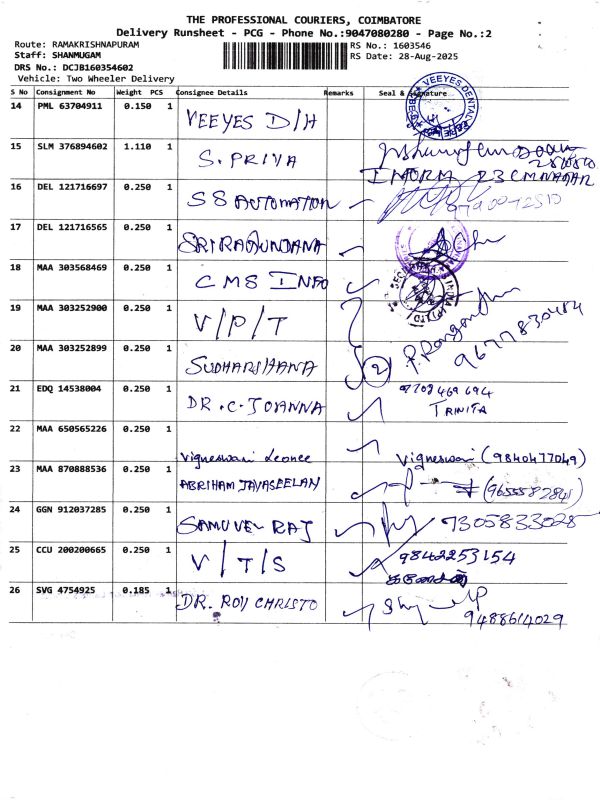 THE PROFESSIONAL COURIERS, COIMBATORE
Delivery Runsheet - PCG - Phone No.:9047080280 - Page No.:2
Route: RAMAKRISHNAPURAM
RS No.: 1603546
Staff: SHANMUGAM
RS Date: 28-Aug-2025
DRS No.: DCJB160354602
Vehicle: Two Wheeler Delivery
S No Consignment No Weight PCS Consignee Details Remarks Seal & Signature
14 PML 63704911 0.150 1 VEEYES D/H VEEYES DENTAL
15 SLM 376894602 1.110 1 S. PRIYA
INFORM R3 CM NAGAR
16 DEL 121716697 0.250 1 SS AUTOMATION
17 DEL 121716565 0.250 1
18 MAA 303568469 0.250 1 CMS INFO
19 MAA 303252900 0.250 1 V/P/T
20 MAA 303252899 0.250 1 SUDHARSHANA 2 9677830484
21 EDQ 14538004 0.250 1 DR. C. JOANNA TRINITA
22 MAA 650565226 0.250 1 Vigneswari Leonee Vigneswari (9840477049)
23 MAA 870888536 0.250 1 ABRIHAM JAYASEELAN
24 GGN 912037285 0.250 1 SAMUVEL RAJ 7305833028
25 CCU 200200665 0.250 1 V/T/S 9842253154
26 SVG 4754925 0.185 1 DR. ROY CHRISTO 9488614029